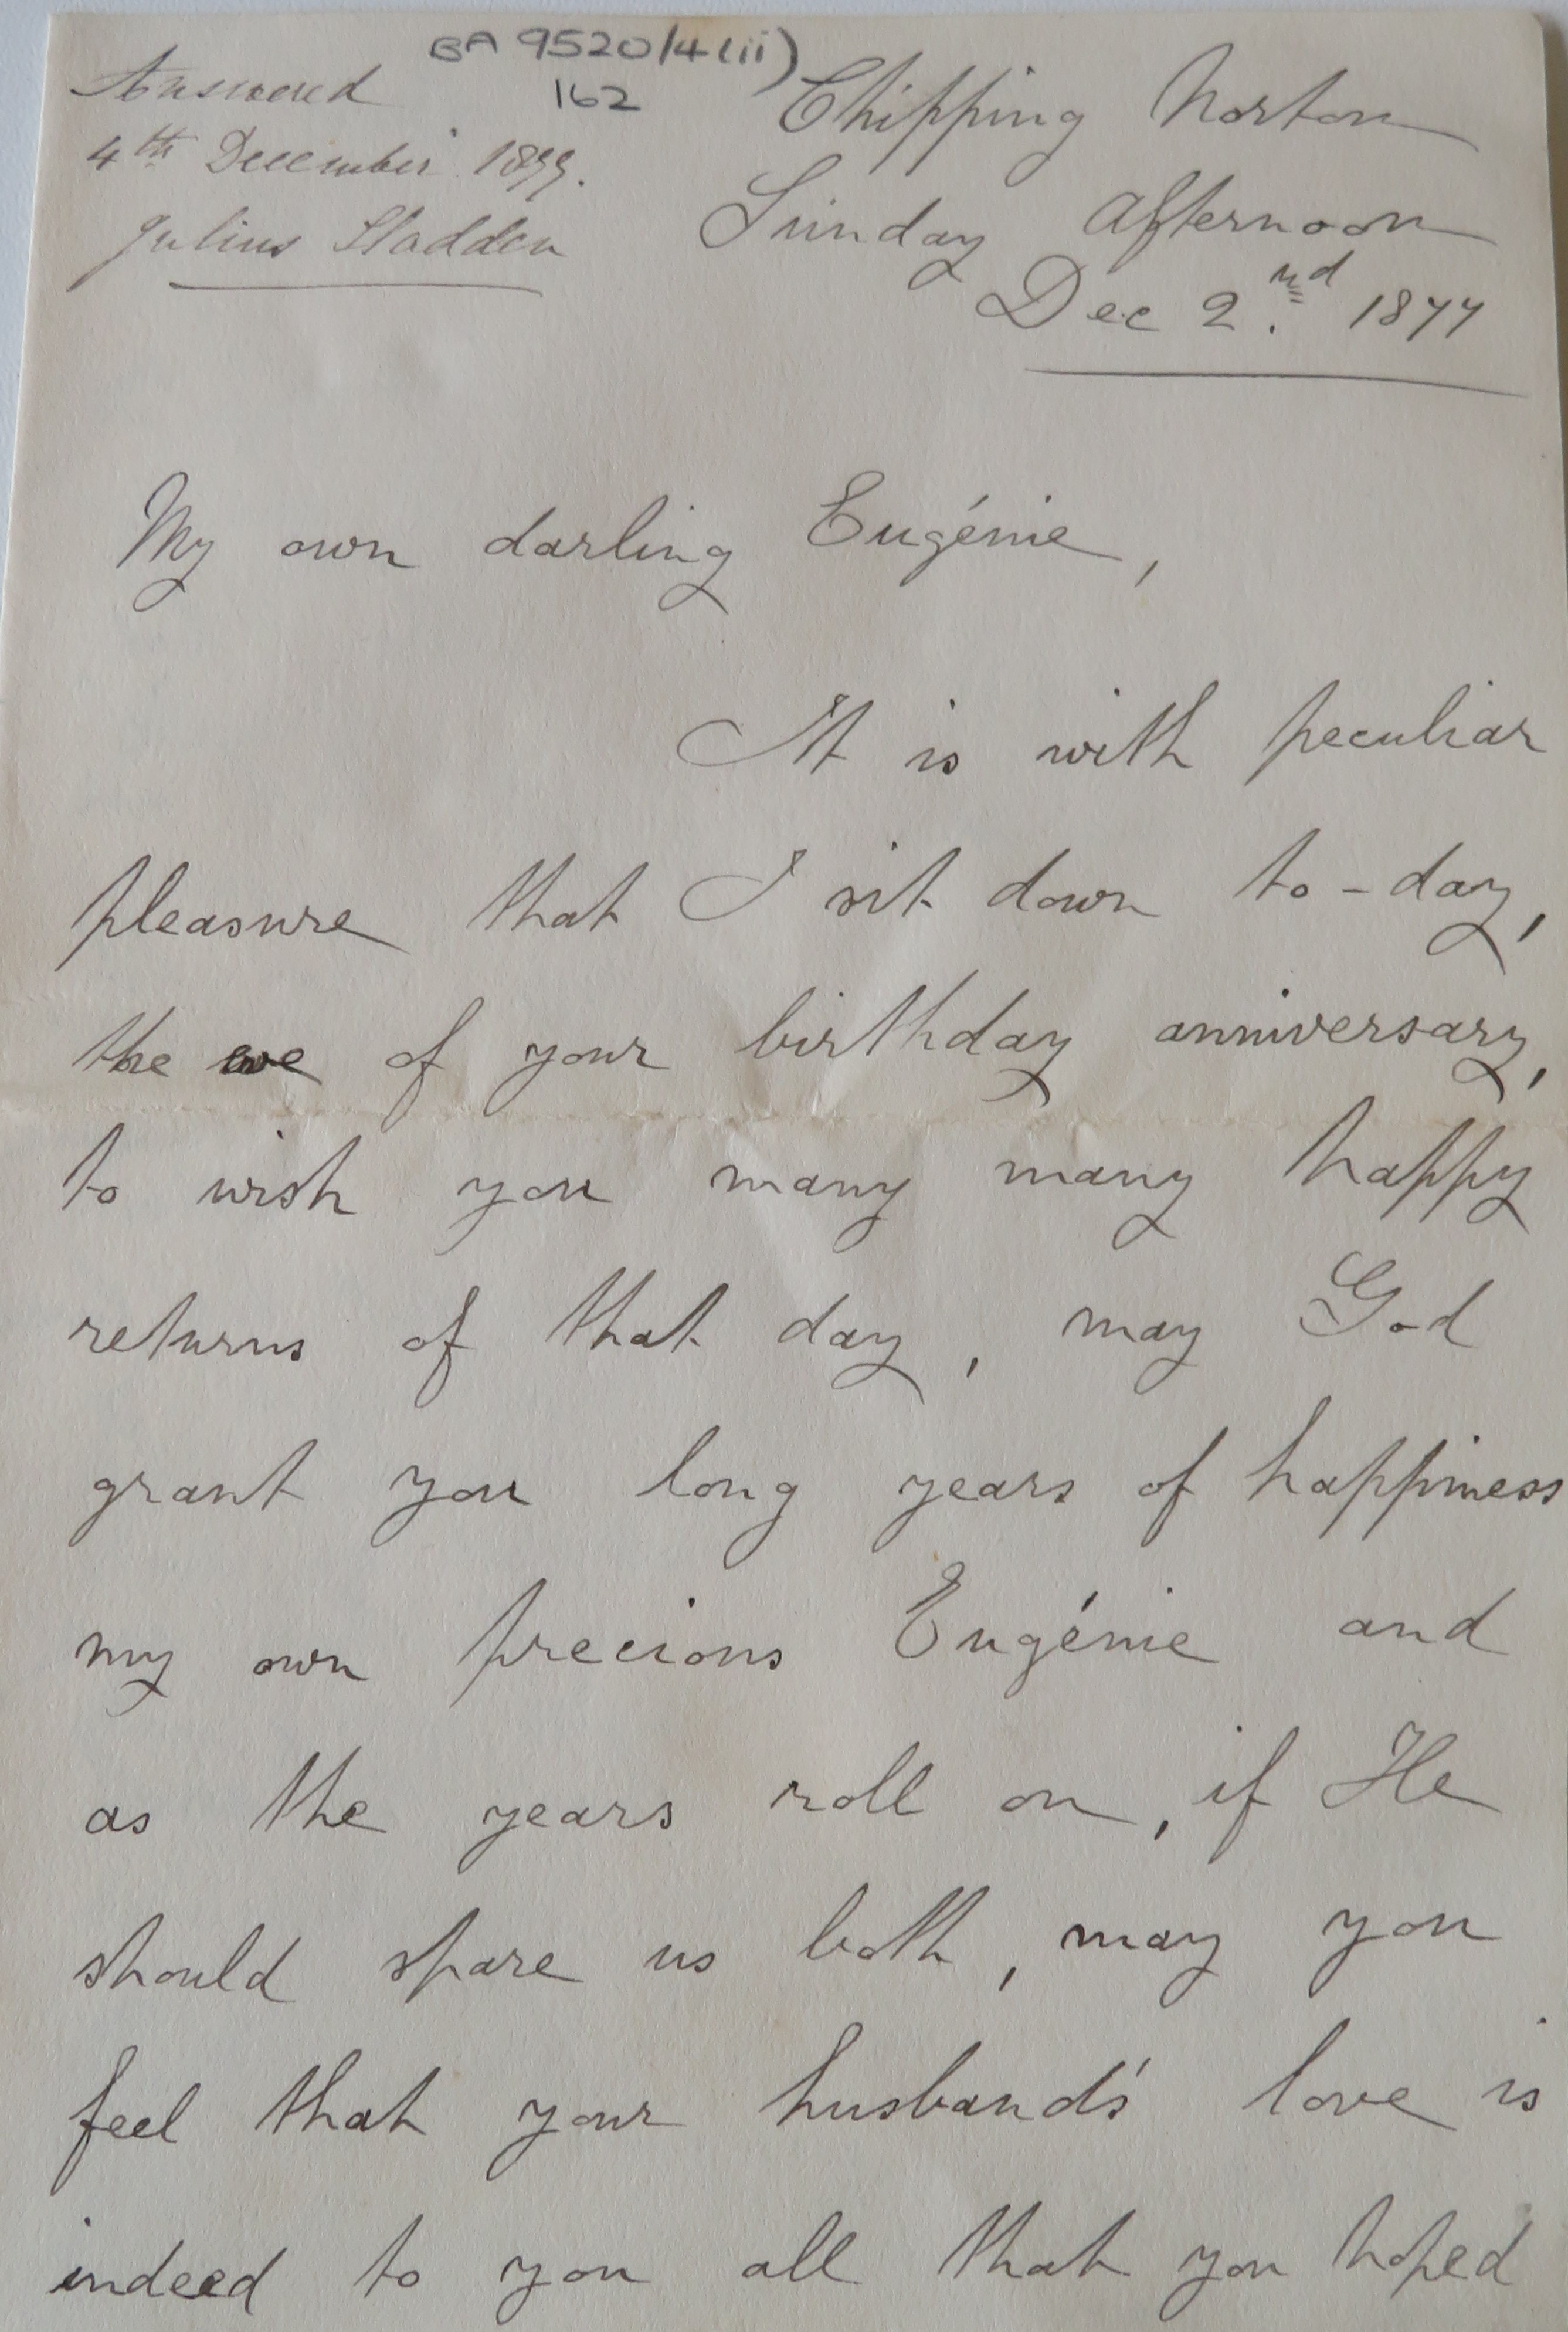 BA 9520/4(ii)
162
Answered
4th December 1877.
Julius Sladden
Chipping Norton
Sunday afternoon
Dec 2.nd 1877
My own darling Eugénie,
It is with peculiar
pleasure that I sit down to-day,
the eve of your birthday anniversary,
to wish you many many happy
returns of that day, may God
grant you long years of happiness
my own precious Eugénie and
as the years roll on, if He
should spare us both, may you
feel that your husband's love is
indeed to you all that you hoped